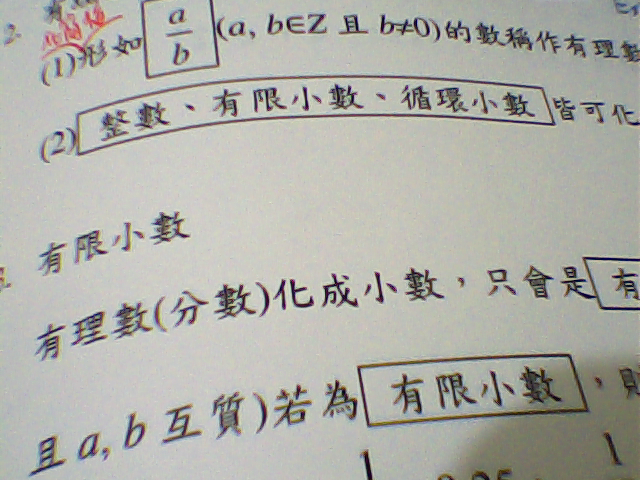 2.
(1)形如 a/b (a, b∈Z 且 b≠0)的數稱作有理數
(2) 整數、有限小數、循環小數 皆可化
有限小數
有理數(分數)化成小數，只會是 有
且 a, b 互質)若為 有限小數 ，則